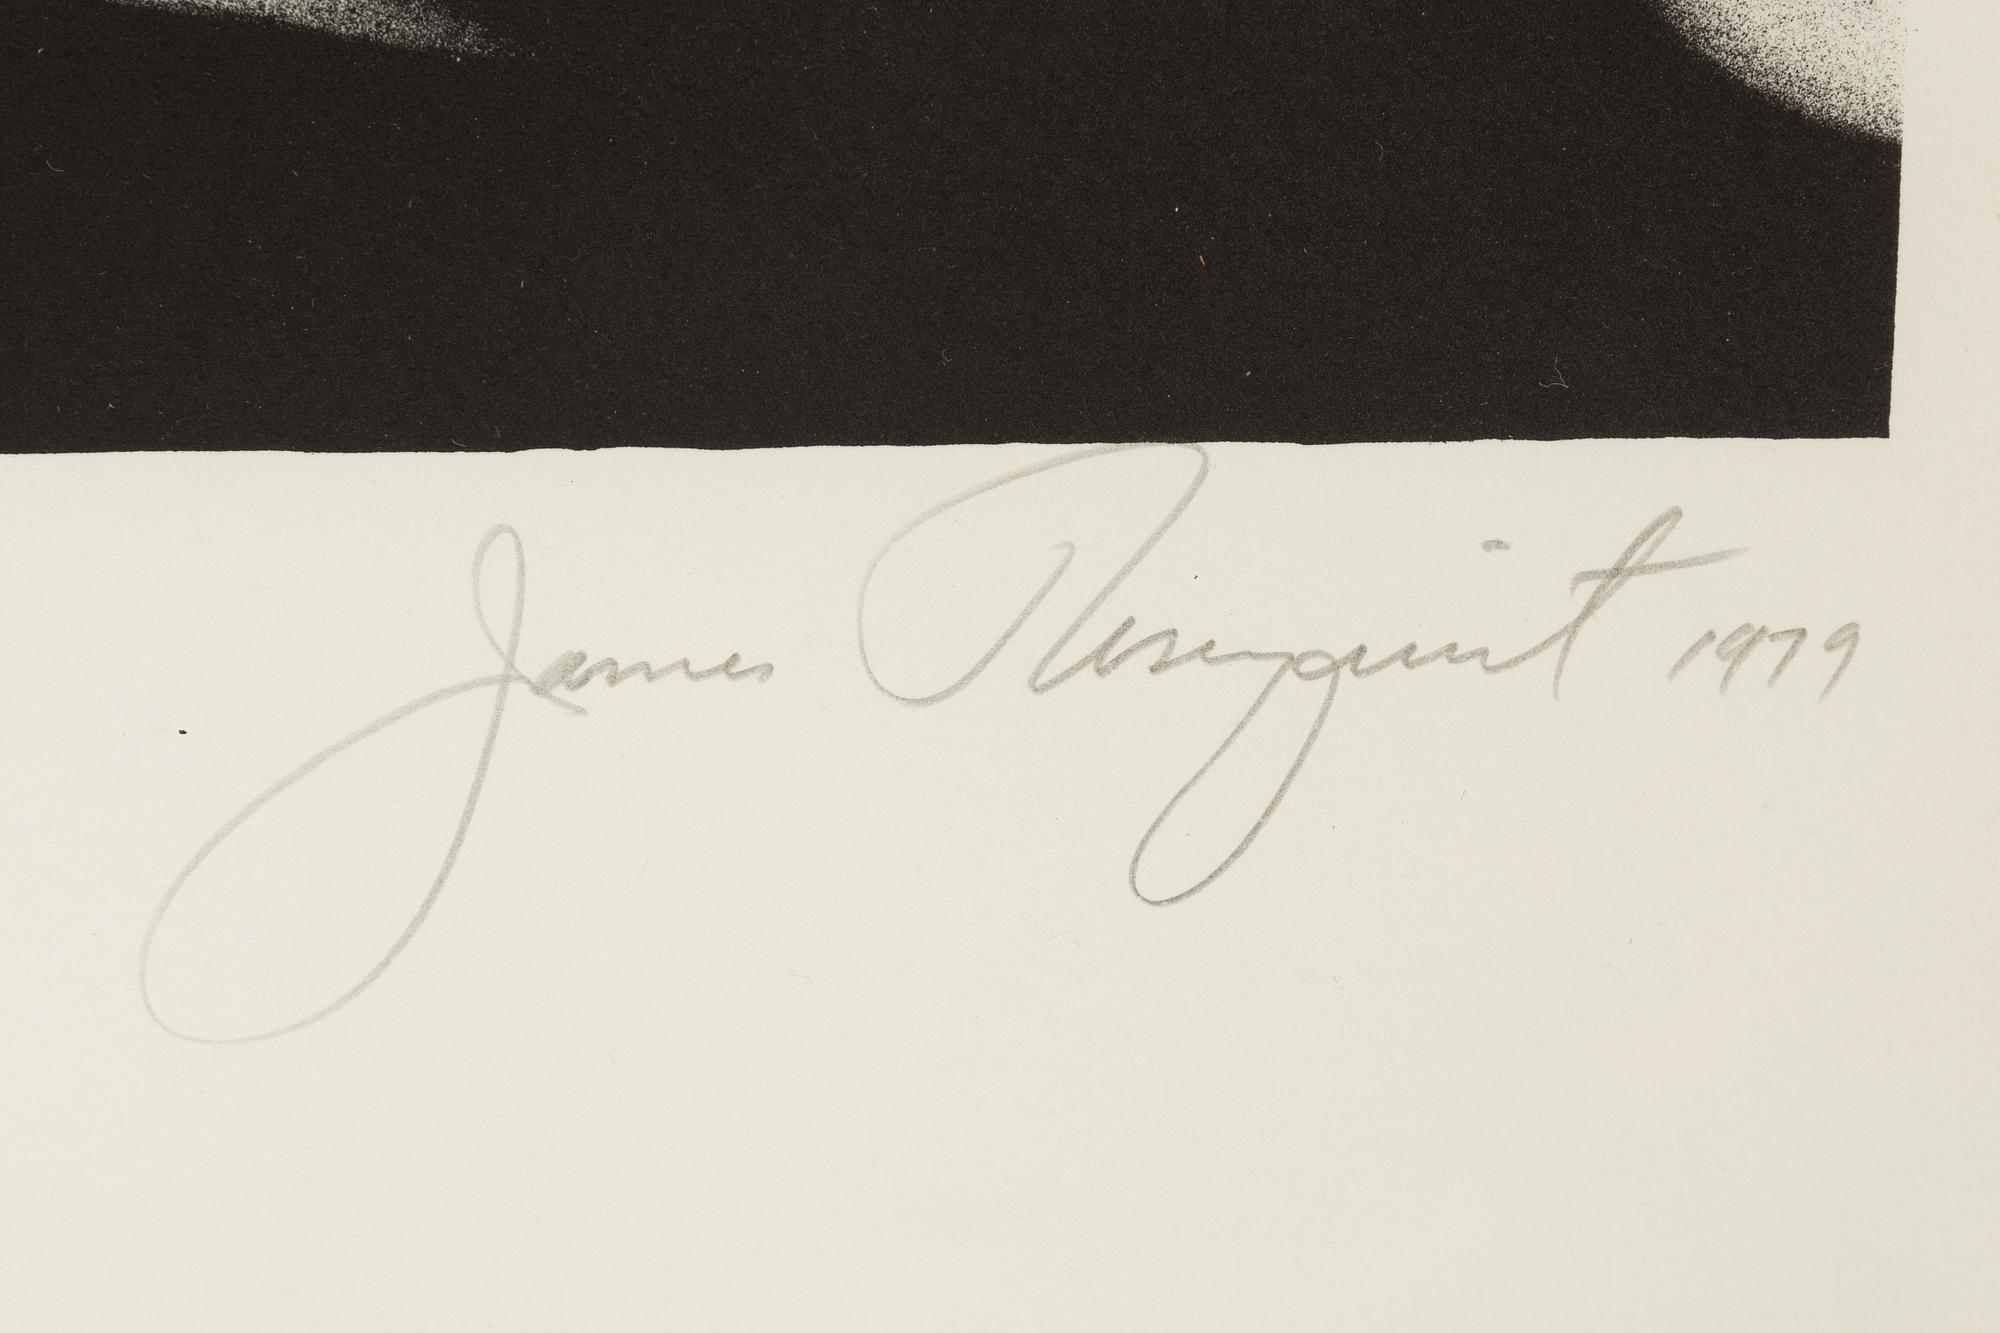 James Rosenquist 1979